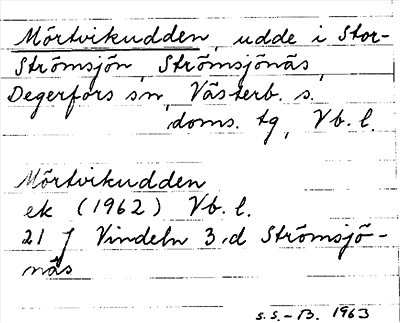 Mörtvikudden, udde i Stor-
Strömsjön, Strömsjönäs,
Degerfors sn, Västerb. s.
doms. tg, Vb. l.
Mörtvikudden
ek (1962) Vb. l.
21 J Vindeln 3.d Strömsjö-
näs
S.S.-B. 1963